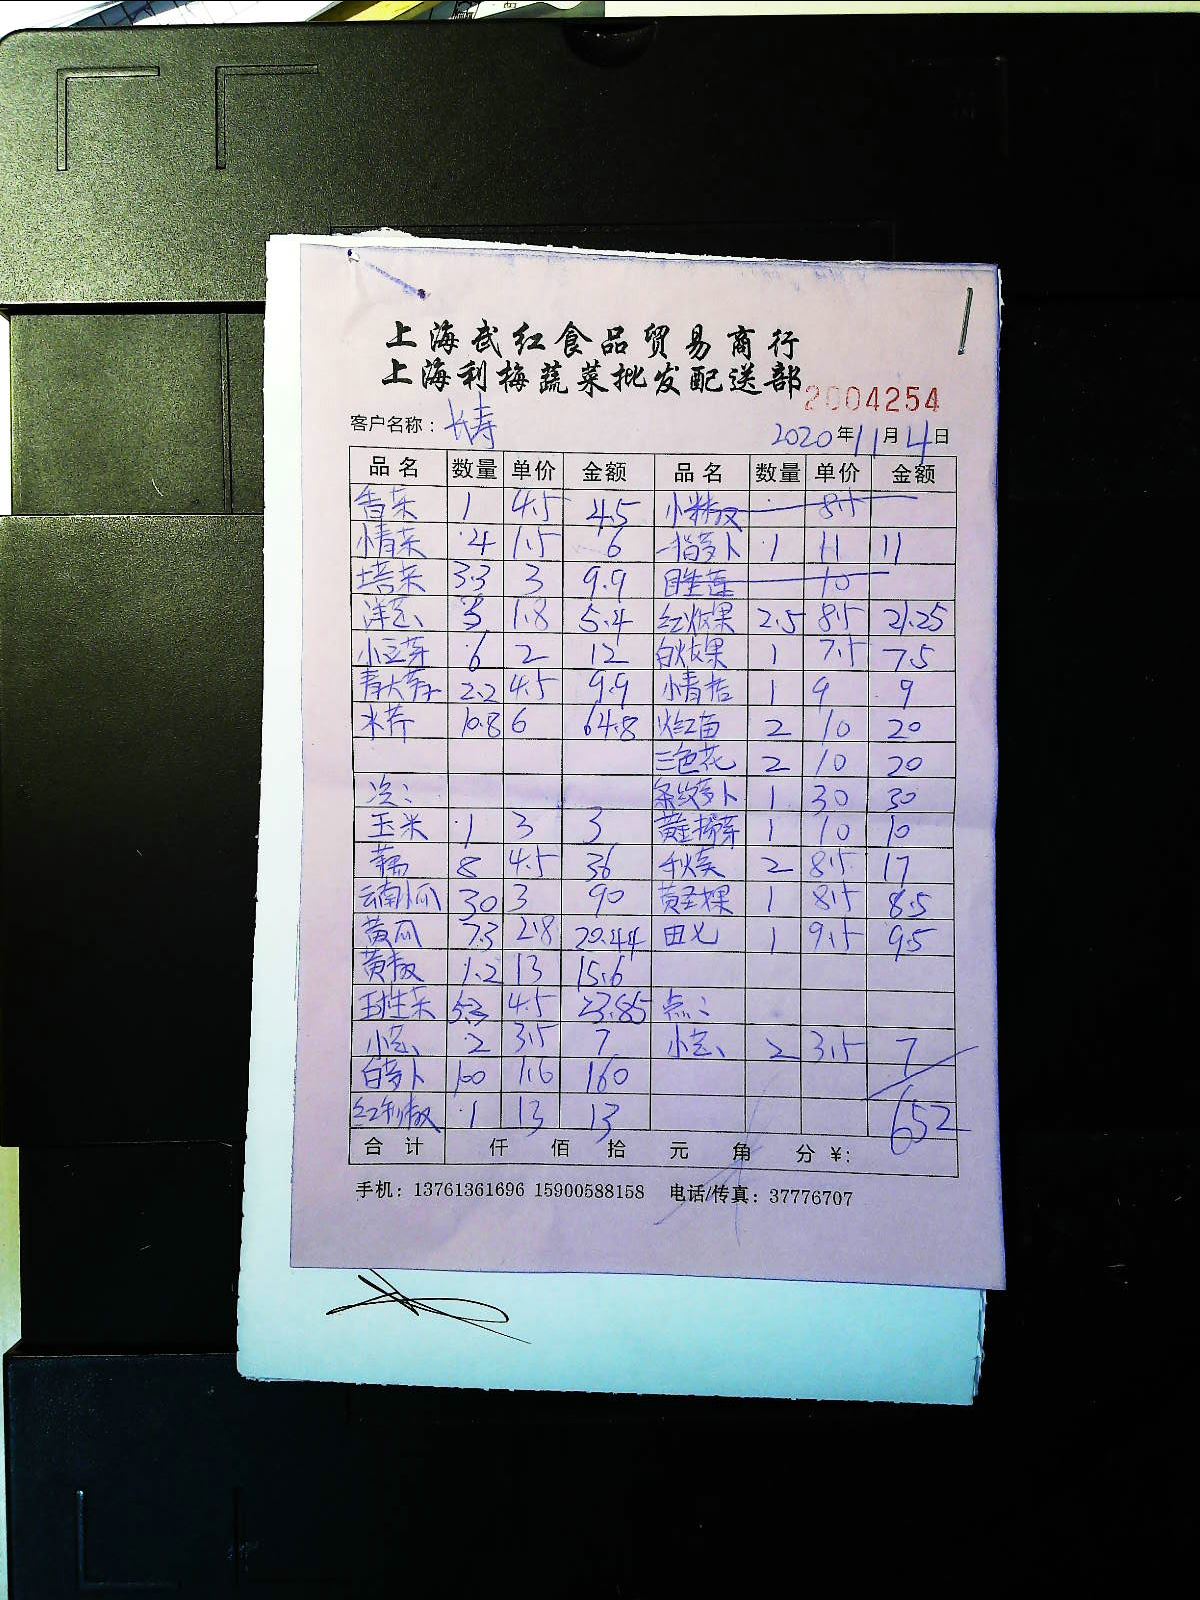 上海武红食品贸易商行
上海利梅蔬菜批发配送部
2004254
客户名称：长寿
2020年11月4日
品名 数量 单价 金额 品名 数量 单价 金额
香菜 1 4.5 4.5 小米椒 8.5
小青菜 4 1.5 6 手指萝卜 1 11 11
塔菜 3.3 3 9.9 10
洋芯 1.8 5.4 红火龙果 2.5 8.5 21.25
小豆芽 6 2 12 白火龙果 1 7.5 7.5
青大 2.2 4.5 9.9 小青桔 1 9 9
水芹 10.8 6 64.8 苗 2 10 20
三色花 2 10 20
次： 条纹萝卜 1 30 30
玉米 1 3 3 黄金 1 10 10
藕 8 4.5 36 2 8.5 17
云南小瓜 30 3 90 黄圣果 1 8.5 8.5
黄瓜 7.3 2.8 20.44 田七 1 9.5 9.5
黄椒 1.2 13 15.6
球生菜 5.3 4.5 23.85 点：
小芯 2 3.5 7 小芯 2 3.5 7
白萝卜 100 1.6 160
红利椒 1 13 13 652
合计 仟 佰 拾 元 角 分 ¥：
手机：13761361696 15900588158 电话/传真：37776707